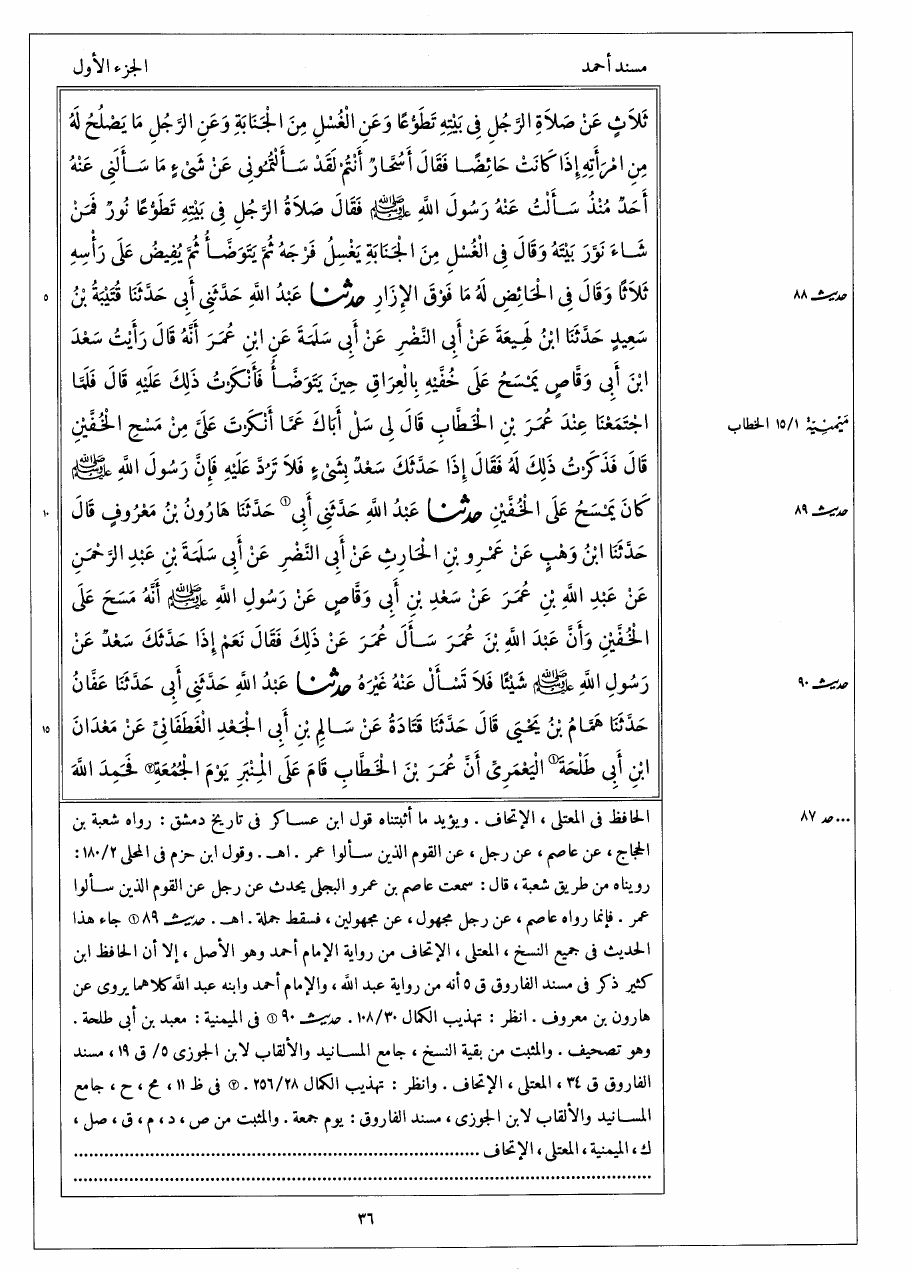 مسند أحمد
الجزء الأول
ثَلَاثٍ عَنْ صَلَاةِ الرَّجُلِ فِى بَيْتِهِ تَطَوُّعًا وَعَنِ الْغُسْلِ مِنَ الْجَنَابَةِ وَعَنِ الرَّجُلِ مَا يَصْلُحُ لَهُ
مِنِ امْرَأَتِهِ إِذَا كَانَتْ حَائِضًا فَقَالَ أَسُحَّارٌ أَنْتُمْ لَقَدْ سَأَلْتُمُونِى عَنْ شَىْءٍ مَا سَأَلَنِى عَنْهُ
أَحَدٌ مُنْذُ سَأَلْتُ عَنْهُ رَسُولَ اللَّهِ ﷺ فَقَالَ صَلَاةُ الرَّجُلِ فِى بَيْتِهِ تَطَوُّعًا نُورٌ فَمَنْ
شَاءَ نَوَّرَ بَيْتَهُ وَقَالَ فِى الْغُسْلِ مِنَ الْجَنَابَةِ يَغْسِلُ فَرْجَهُ ثُمَّ يَتَوَضَّأُ ثُمَّ يُفِيضُ عَلَى رَأْسِهِ
ثَلَاثًا وَقَالَ فِى الْحَائِضِ لَهُ مَا فَوْقَ الإِزَارِ حدثنا عَبْدُ اللَّهِ حَدَّثَنِى أَبِى حَدَّثَنَا قُتَيْبَةُ بْنُ
حديث ٨٨
٥
سَعِيدٍ حَدَّثَنَا ابْنُ لَهِيعَةَ عَنْ أَبِى النَّضْرِ عَنْ أَبِى سَلَمَةَ عَنِ ابْنِ عُمَرَ أَنَّهُ قَالَ رَأَيْتُ سَعْدَ
ابْنَ أَبِى وَقَّاصٍ يَمْسَحُ عَلَى خُفَّيْهِ بِالْعِرَاقِ حِينَ يَتَوَضَّأُ فَأَنْكَرْتُ ذَلِكَ عَلَيْهِ قَالَ فَلَمَّا
اجْتَمَعْنَا عِنْدَ عُمَرَ بْنِ الْخَطَّابِ قَالَ لِى سَلْ أَبَاكَ عَمَّا أَنْكَرْتَ عَلَىَّ مِنْ مَسْحِ الْخُفَّيْنِ
مَيْمَنِيَّة ١٥/١ الخطاب
قَالَ فَذَكَرْتُ ذَلِكَ لَهُ فَقَالَ إِذَا حَدَّثَكَ سَعْدٌ بِشَىْءٍ فَلَا تَرُدَّ عَلَيْهِ فَإِنَّ رَسُولَ اللَّهِ ﷺ
كَانَ يَمْسَحُ عَلَى الْخُفَّيْنِ حدثنا عَبْدُ اللَّهِ حَدَّثَنِى أَبِى① حَدَّثَنَا هَارُونُ بْنُ مَعْرُوفٍ قَالَ
حديث ٨٩
١٠
حَدَّثَنَا ابْنُ وَهْبٍ عَنْ عَمْرِو بْنِ الْحَارِثِ عَنْ أَبِى النَّضْرِ عَنْ أَبِى سَلَمَةَ بْنِ عَبْدِ الرَّحْمَنِ
عَنْ عَبْدِ اللَّهِ بْنِ عُمَرَ عَنْ سَعْدِ بْنِ أَبِى وَقَّاصٍ عَنْ رَسُولِ اللَّهِ ﷺ أَنَّهُ مَسَحَ عَلَى
الْخُفَّيْنِ وَأَنَّ عَبْدَ اللَّهِ بْنَ عُمَرَ سَأَلَ عُمَرَ عَنْ ذَلِكَ فَقَالَ نَعَمْ إِذَا حَدَّثَكَ سَعْدٌ عَنْ
رَسُولِ اللَّهِ ﷺ شَيْئًا فَلَا تَسْأَلْ عَنْهُ غَيْرَهُ حدثنا عَبْدُ اللَّهِ حَدَّثَنِى أَبِى حَدَّثَنَا عَفَّانُ
حديث ٩٠
حَدَّثَنَا هَمَّامُ بْنُ يَحْيَى قَالَ حَدَّثَنَا قَتَادَةُ عَنْ سَالِمِ بْنِ أَبِى الْجَعْدِ الْغَطَفَانِىِّ عَنْ مَعْدَانَ
١٥
ابْنِ أَبِى طَلْحَةَ① الْيَعْمَرِىِّ أَنَّ عُمَرَ بْنَ الْخَطَّابِ قَامَ عَلَى الْمِنْبَرِ يَوْمَ الْجُمُعَةِ② فَحَمِدَ اللَّهَ
...حد ٨٧
الحافظ فى المعتلى ، الإتحاف . ويؤيد ما أثبتناه قول ابن عساكر فى تاريخ دمشق : رواه شعبة بن
الحجاج ، عن عاصم ، عن رجل ، عن القوم الذين سألوا عمر . اهـ . وقول ابن حزم فى المحلى ١٨٠/٢ :
رويناه من طريق شعبة ، قال : سمعت عاصم بن عمرو البجلى يحدث عن رجل عن القوم الذين سألوا
عمر . فإنما رواه عاصم ، عن رجل مجهول ، عن مجهولين ، فسقط جملة . اهـ . حديث ٨٩ ① جاء هذا
الحديث فى جميع النسخ ، المعتلى ، الإتحاف من رواية الإمام أحمد وهو الأصل ، إلا أن الحافظ ابن
كثير ذكر فى مسند الفاروق ق ٥ أنه من رواية عبد الله ، والإمام أحمد وابنه عبد الله كلاهما يروى عن
هارون بن معروف . انظر : تهذيب الكمال ١٠٨/٣٠ . حديث ٩٠ ① فى الميمنية : معبد بن أبى طلحة .
وهو تصحيف . والمثبت من بقية النسخ ، جامع المسانيد والألقاب لابن الجوزى ٥/ ق ١٩ ، مسند
الفاروق ق ٣٤ ، المعتلى ، الإتحاف . وانظر : تهذيب الكمال ٢٥٦/٢٨ . ② فى ظ ١١ ، مح ، ح ، جامع
المسانيد والألقاب لابن الجوزى ، مسند الفاروق : يوم جمعة . والمثبت من ص ، د ، م ، ق ، صل ،
ك ، الميمنية ، المعتلى ، الإتحاف ...........
٣٦